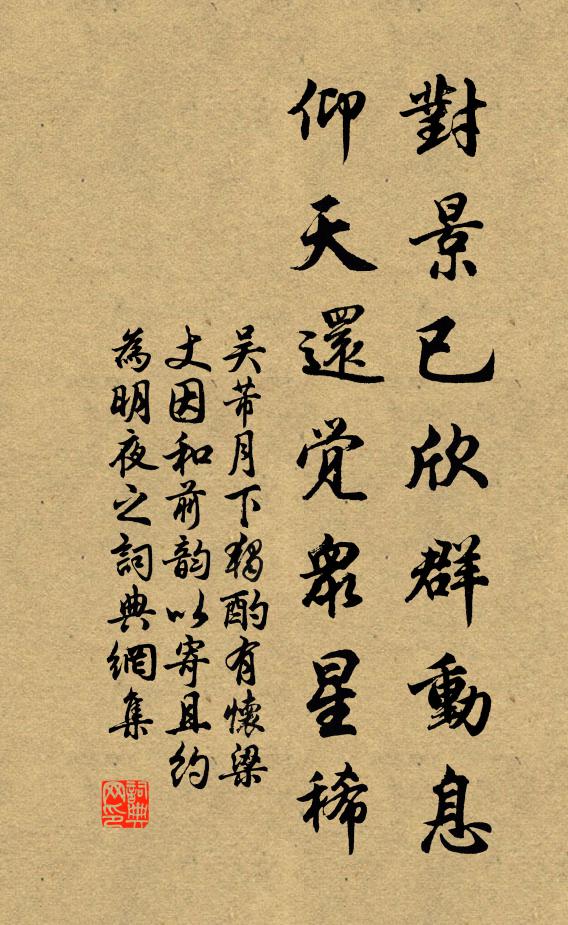 對景已欣群動息
仰天還覺衆星稀
吴芾月下獨酌有懷梁
丈因和前韵以寄且約
為明夜之詞典網集
詞典
网印